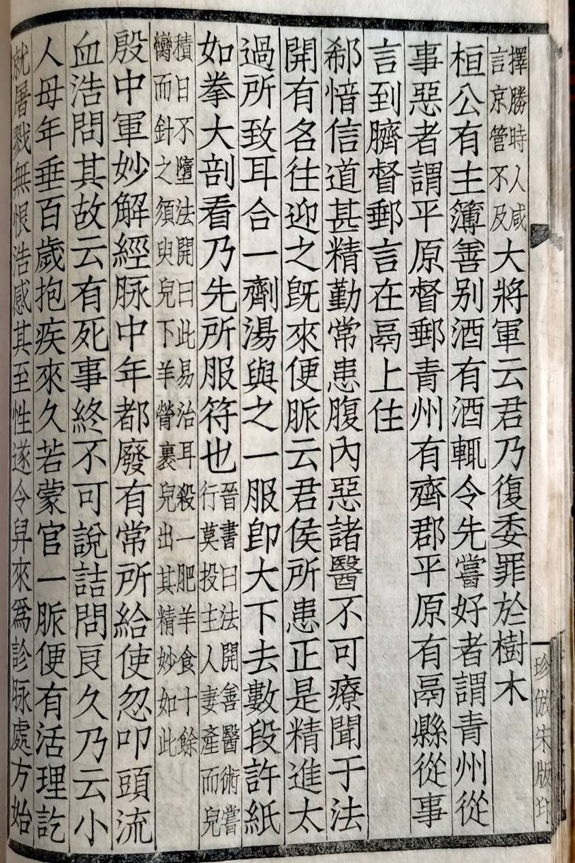 珍倣宋版印
擇勝時人咸
言京管不及
大將軍云君乃復委罪於樹木
桓公有主簿善别酒有酒輒令先嘗好者謂青州從
事惡者謂平原督郵青州有齊郡平原有鬲縣從事
言到臍督郵言在鬲上住
郗愔信道甚精勤常患腹內惡諸醫不可療聞于法
開有名往迎之旣來便脈云君侯所患正是精進太
過所致耳合一劑湯與之一服卽大下去數段許紙
如拳大剖看乃先所服符也
晉書曰法開善醫術嘗
行莫投主人妻產而兒
積日不墮法開曰此易治耳殺一肥羊食十餘
臠而針之須臾兒下羊膋裹兒出其精妙如此
殷中軍妙解經脈中年都廢有常所給使忽叩頭流
血浩問其故云有死事終不可說詰問良久乃云小
人母年垂百歲抱疾來久若蒙官一脈便有活理訖
就屠戮無恨浩感其至性遂令舁來爲診脈處方始